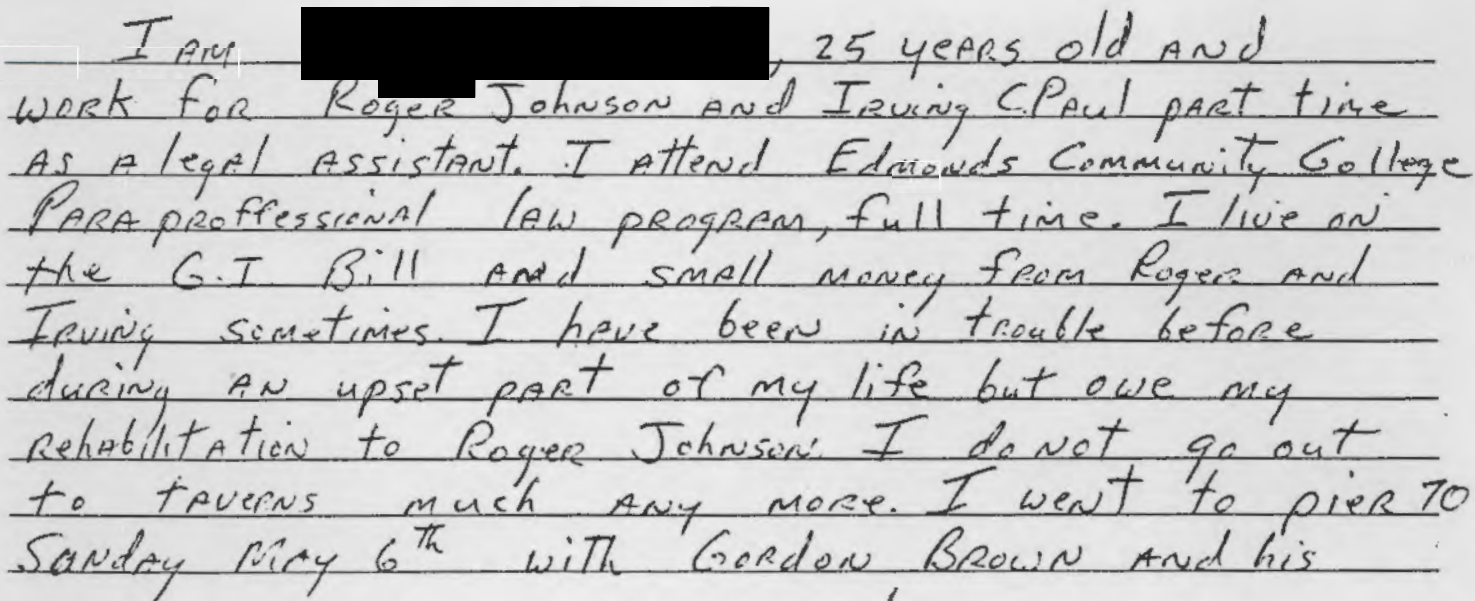 I AM , 25 years old and
work for Roger Johnson and Irving C Paul part time
as a legal assistant. I attend Edmonds Community College
Para proffessional law program, full time. I live on
the G.I Bill and small money from Roger and
Irving sometimes. I have been in trouble before
during an upset part of my life but owe my
rehabilitation to Roger Johnson. I do not go out
to taverns much any more. I went to pier 70
Sunday May 6th with Gordon Brown and his